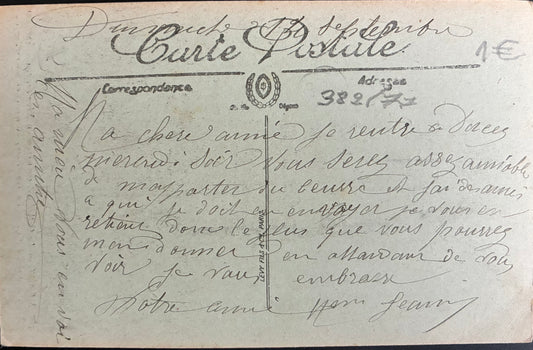 Dimanche 13 Septembre
Carte Postale
1€
Correspondance
Adresse
382/77
Ma chere amie je rentre a
mercredi soir vous serez assez aimable
de m'apporter du beurre et j'ai des amis
a qui je doit en envoyer je vous en
retient donc le plus que vous pourrez
mon donner en attendant de vous
voir je vous embrasse
Votre amie Jeanne
Ma mere vous envoi
ses amitiés
LEVY FILS & Cie PARIS